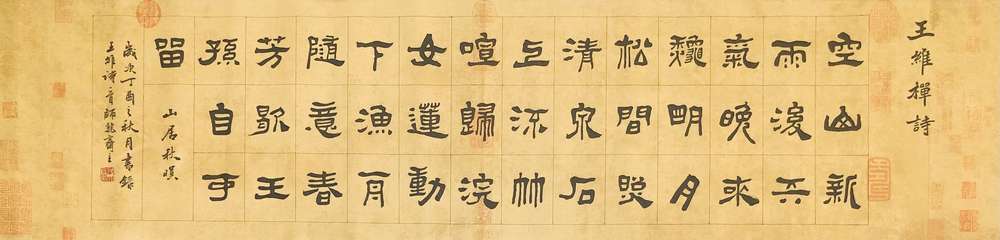 王維禪詩
空山新
雨後天
氣晚來
龝明月
松間照
清泉石
上流竹
喧歸浣
女蓮動
下漁舟
隨意春
芳歇王
孫自可
留
山居秋暝
歲次丁酉之秋月書錄
王維詩一首